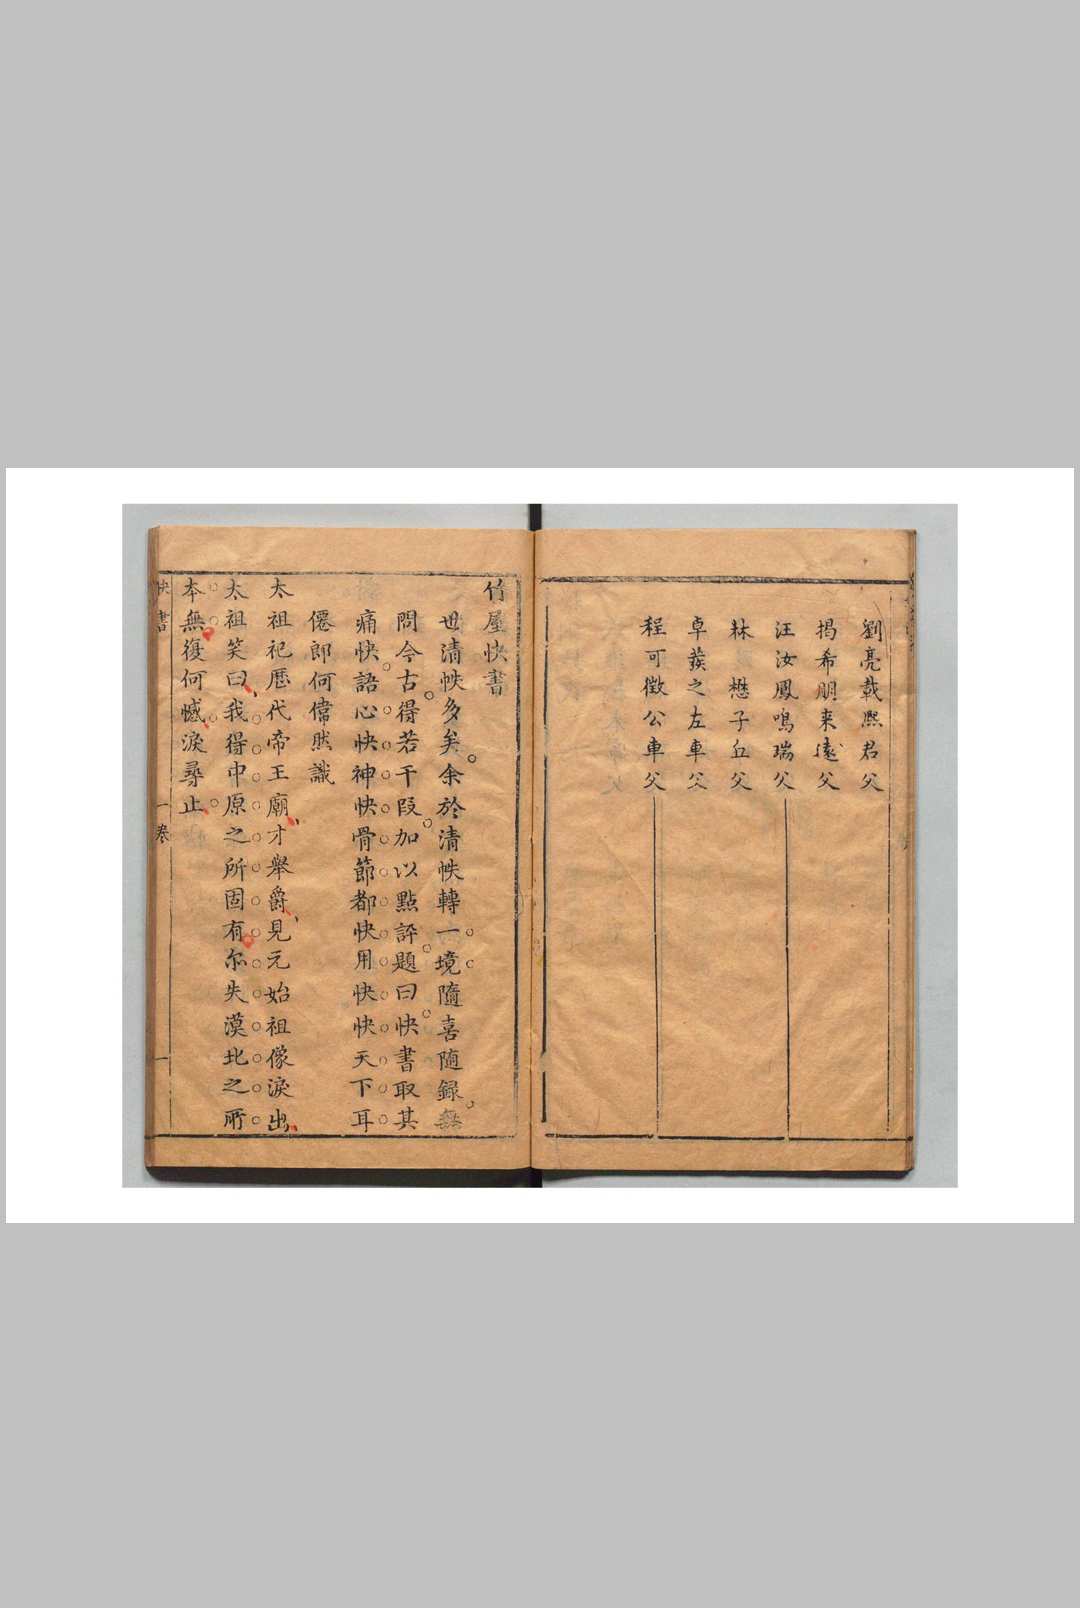 劉亮載熙君父
揭希朙来遠父
汪汝鳳鳴瑞父
林懋子丘父
卓蕤之左車父
程可徵公車父
竹屋快書
世清帙多矣余於清帙轉一境隨喜隨録無
問今古得若干段加以點評題曰快書取其
痛快語心快神快骨節都快用快快天下耳
僊郎何偉然識
太祖祀歷代帝王廟才舉爵見元始祖像淚出
太祖笑曰我得中原之所固有尔失漠北之所
本無復何憾淚尋止
快書
一卷
一